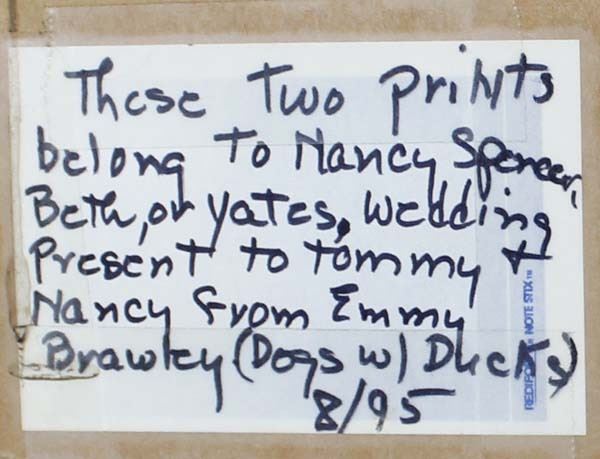 These Two Prints
belong To Nancy Spencer,
Beth, or Yates, Wedding
Present to Tommy +
Nancy From Emmy
Brawley (Dogs w/ Ducks)
8/95
NOTE STIX™